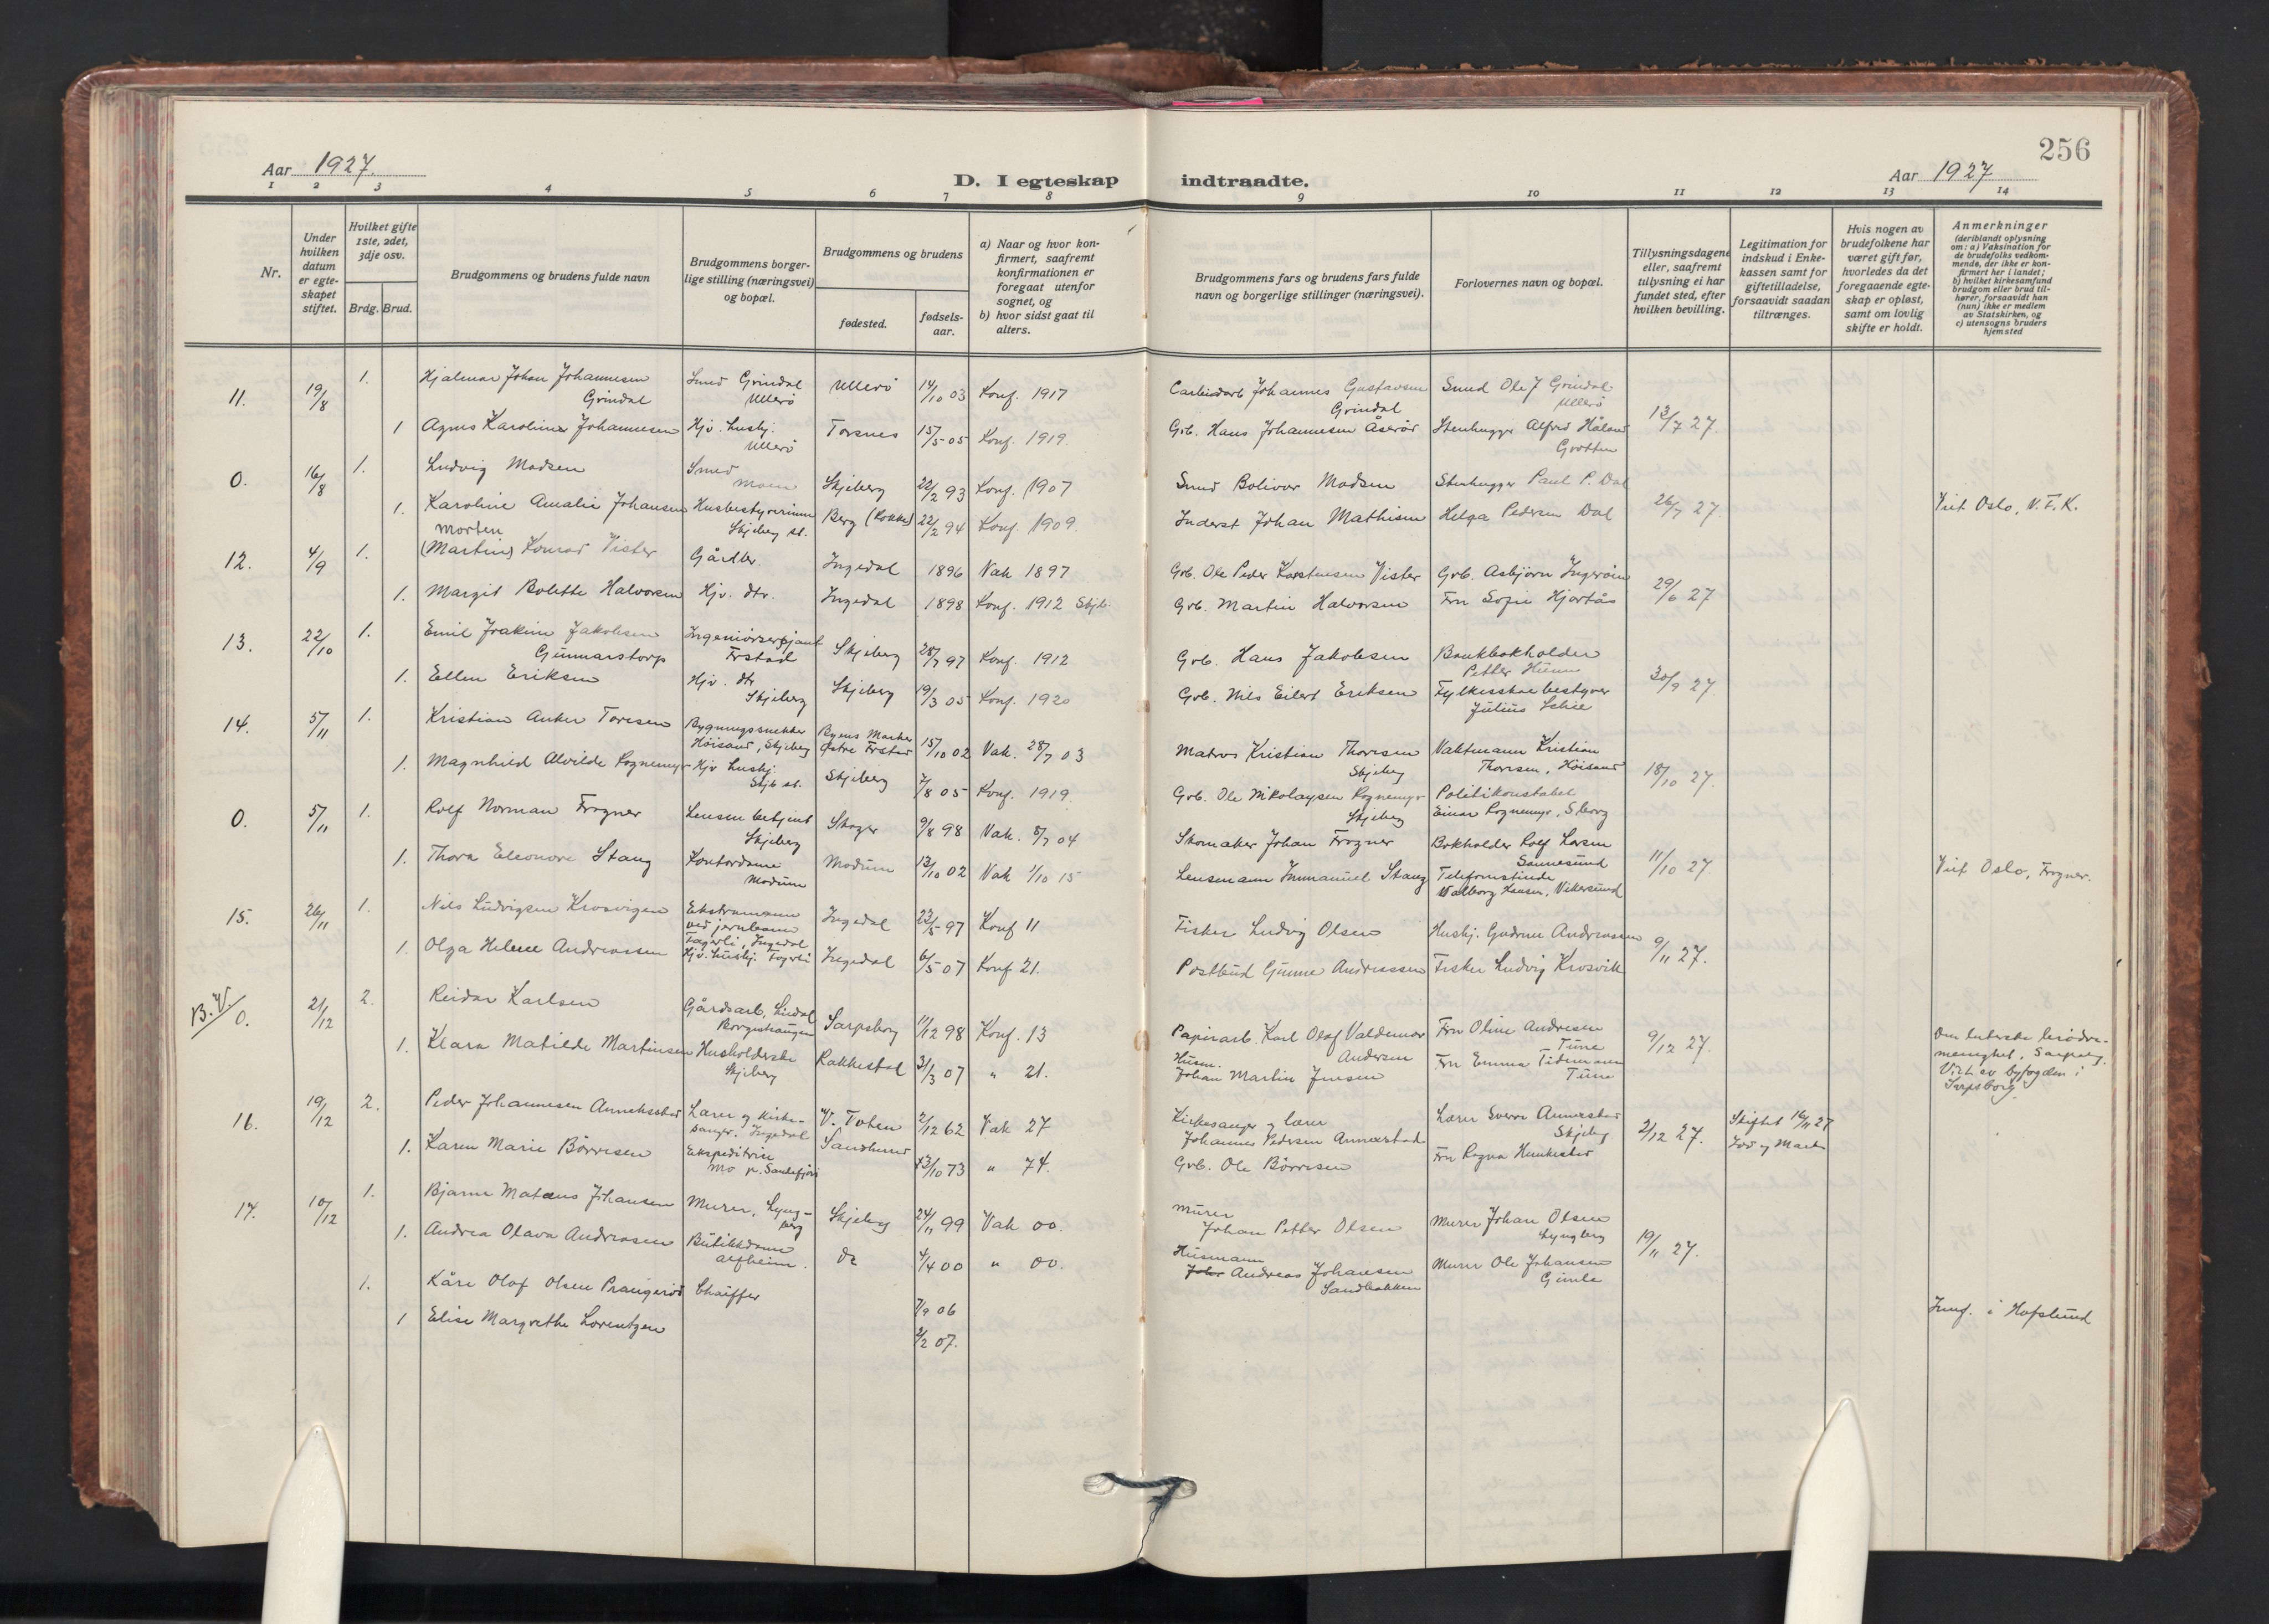 256
Aar 1927.
D. I egteskap indtraadte.
Aar 1927
1 2 3 4 5 6 7 8 9 10 11 12 13 14
Nr.
Under hvilken datum er egte-skapet stiftet.
Hvilket gifte 1ste, 2det, 3dje osv.
Brdg. Brud.
Brudgommens og brudens fulde navn
Brudgommens borger-lige stilling (næringsvei) og bopæl.
Brudgommens og brudens
fødested.
fødsels-aar.
a) Naar og hvor kon-firmert, saafremt konfirmationen er foregaat utenfor sognet, og
b) hvor sidst gaat til alters.
Brudgommens fars og brudens fars fulde navn og borgerlige stillinger (næringsvei).
Forlovernes navn og bopæl.
Tillysningsdagene eller, saafremt tilysning ei har fundet sted, efter hvilken bevilling.
Legitimation for indskud i Enke-kassen samt for giftetilladelse, forsaavidt saadan tiltrænges.
Hvis nogen av brudefolkene har været gift før, hvorledes da det foregaaende egte-skap er opløst, samt om lovlig skifte er holdt.
Anmerkninger
(deriblandt oplysning om: a) Vaksination for de brudefolks vedkom-mende, der ikke er kon-firmert her i landet; b) hvilket kirkesamfund brudgom eller brud til-hører, forsaavidt han (hun) ikke er medlem av Statskirken, og c) utensogns bruders hjemsted
11. 19/8 1. Hjalmar Johan Johannesen Grindal Smed Grindal Ullerö Ullerö 14/10 03 Konf. 1917 Carbidarb Johannes Gustavsen Grindal Smed Ole J Grindal Ullerö
1 Agnes Karoline Johannesen Hjv. husbj. Ullerö Torsnes 15/5 05 Konf. 1919. Grb. Hans Johannesen Åseröd Stenhugger Alfred Håland Grotten 13/7 27.
0. 16/8 1. Ludvig Madsen Smed Moen Skjeberg 22/2 93 Konf. 1907 Smed Bolivar Madsen Stenhugger Paul P. Dal
1. Karoline Amalie Johansen Husbestyrerinne Skjeberg st. Berg (Rokke) 22/2 94 Konf. 1909. Inderst Johan Mathisen Helga Pedersen Dal 26/7 27. Viet Oslo, V.F.K.
12. 4/9 1. Morten (Martin) Konrad Vister Gårdbr. Ingedal 1896 Vak 1897 Grb. Ole Peder Karstensen Vister Grb. Asbjørn Ingeröen
1. Margit Bolette Halvorsen Hjv. dtr. Ingedal 1898 Konf. 1912 Skjb. Grb. Martin Halvorsen Fru Sofie Hjortås 29/6 27
13. 22/10 1. Emil Joakim Jakobsen Gunnarstorp Ingeniörsersjant Frstad Skjeberg 28/7 97 Konf. 1912 Grb. Hans Jakobsen Bankbokholder Petter Hunn
1. Ellen Eriksen Hjv. dtr Skjeberg Skjeberg 19/3 05 Konf. 1920 Grb. Nils Eilert Eriksen Fylkesskolebestyrer Julius Schie 30/9 27.
14. 5/11 1. Kristian Anker Toresen Bygningssnekker Höisand, Skjeberg Byens Marker Østre Frstad 15/10 02 Vak. 28/7 03 Matros Kristian Thoresen Skjeberg Vaktmann Kristian Thoresen, Höisand
1. Magnhild Alvilde Rognemyr Hjv husbj. Skjb st. Skjeberg 7/8 05 Konf. 1919. Grb. Ole Nikolaysen Rognemyr Skjeberg Politikonstabel Einar Rognemyr, Sborg 18/10 27.
0. 5/11 1. Rolf Norman Frogner Lensm betjent Skjeberg Skoger 9/8 98 Vak. 8/7 04 Skomaker Johan Frogner Bokholder Rolf Larsen Sannesund
1. Thora Eleonore Stang Kontordame Modum Modum 13/10 02 Vak 1/10 15 Lensmann Immanuel Stang Telefonistinde Valborg Hansen, Vikersund 11/10 27. Viet Oslo, Frogner.
15. 26/11 1. Nils Ludvigsen Krosvigen Ekstramann ved jernbanen Fagerli, Ingedal Ingedal 23/5 97 Konf 11 Fisker Ludvig Olsen Husbj. Gudrun Andreassen
1. Olga Helene Andreassen Hjv. husbj. Fagerli Ingedal 6/5 07 Konf 21. Postbud Gunne Andreassen Fisker Ludvig Krosvik 9/11 27.
B.V. 0. 21/12 2. Reidar Karlsen Gårdsarb, Lindal Borgenhaugen Sarpsborg 11/12 98 Konf. 13 Papirarb. Karl Olaf Valdemar Andersen Fru Oline Andresen Tune
1. Klara Matilde Martinsen Husholderske Skjeberg Rakkestad 31/3 07 " 21. Husm. Johan Martin Jensen Fru Emma Tidemann Tune 9/12 27. Den luterske brödre-menighet, Sarpsborg. Viet av byfogden i Sarpsborg
16. 19/12 2. Peder Johannesen Annekstad Lærer og kirke-sanger, Ingedal V. Toten 2/12 62 Vak 27 Kirkesanger og lærer Johannes Pedersen Annexstad Lærer Sverre Annexstad Skjeberg 2/12 27. Skiftet 16/11 27
1. Karen Marie Börresen Ekspeditrise Mo p. Sandefjord Sandherred 13/10 73 " 74. Grb. Ole Börresen Fru Ragna
17. 10/12 1. Bjarne Matæus Johansen Murer, Lyng-berg Skjeberg 24/11 99 Vak 00. Murer Johan Petter Olsen Murer Johan Olsen Lyngberg
1. Andrea Olava Andreasen Butikkdame Alfheim. do 4/4 00 " 00. Husmann Andreas Johansen Sandbakken Murer Ole Johansen Gimle 19/11 27.
1. Kåre Olaf Olsen Prangeröd Chäuffør 7/9 06
1 Elise Margrethe Lorentzen 2/2 07. Innf. i Hafslund